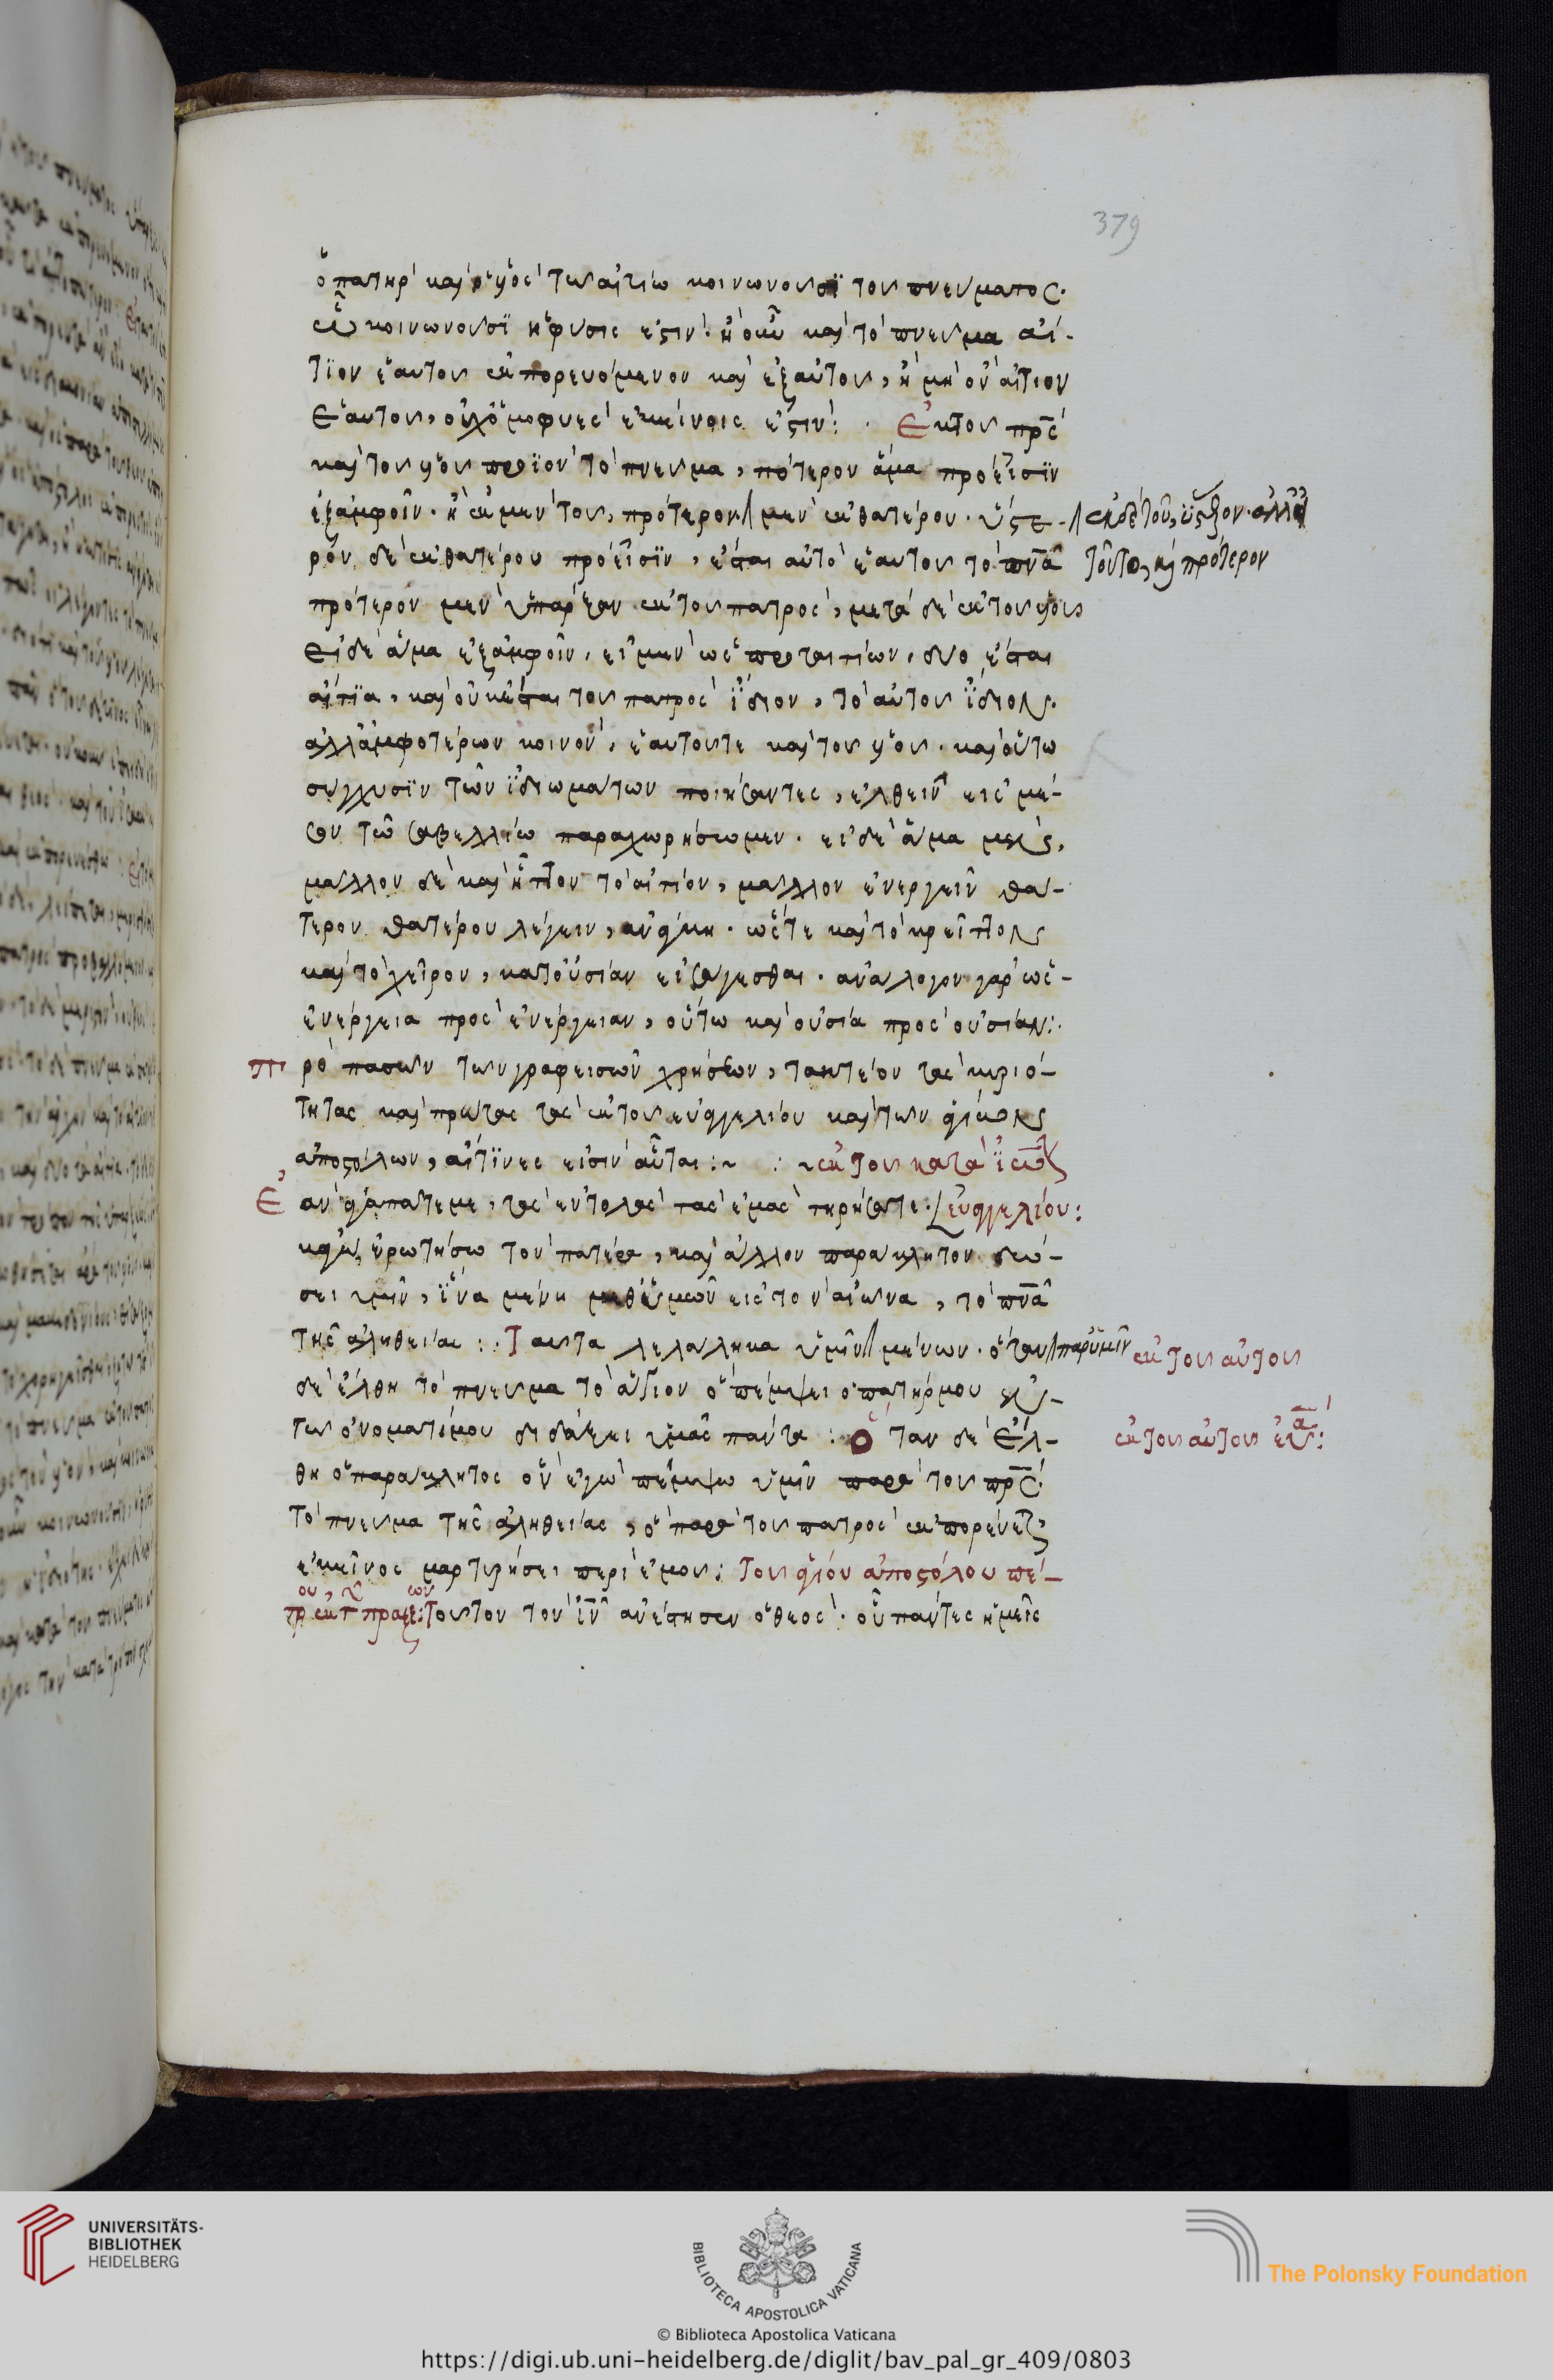 379
ὁ πατὴρ καὶ ὁ υἱὸς τῶ αἰτίω κοινωνοῦσι τοῦ πνεύματος.
κοινωνοῦσϊ ἡ φύσις ἐστὶν. ἢ οὖν καὶ τὸ πνεῦμα αἴ-
τϊον ἑαυτοῦ ἐκπορευόμενον καὶ ἐξ αὐτοῦ, ἢ μὴ ὂν αἴτιον
ἑαυτοῦ, οὐχ ὁμοφυὲς ἐκείνοις ἐστὶν: Ἐκ τοῦ πρς
καὶ τοῦ υἱοῦ προϊὸν τὸ πνεῦμα, πότερον ἅμα πρόεισϊν
ἐξ ἀμφοῖν. ἢ ἐκ μὲν τοῦ, πρότερον // μὲν ἐκ θατέρου. ὕστε- // ἐκ δὲ τοῦ, ὕστερον. ἀλλ' εἰ
ρον δὲ ἐκ θατέρου πρόεισϊν, ἔσται αὐτὸ ἑαυτοῦ τὸ πνα τοῦτο, καὶ πρότερον
πρότερον μὲν ὑπάρξαν ἐκ τοῦ πατρὸς, μετὰ δὲ ἐκ τοῦ υἱοῦ
εἰ δὲ ἅμα ἐξ ἀμφοῖν, εἰ μὲν ὡς πρωταιτίων, δύο ἔσται
αἴτϊα, καὶ οὐκ ἔσται τοῦ πατρὸς ἴδιον, τὸ αὐτοῦ ἴδιον.
ἀλλ' ἀμφοτέρων κοινὸν, ἑαυτοῦ τε καὶ τοῦ υἱοῦ. καὶ οὕτω
σύγχυσϊν τῶν ἰδιωμάτων ποιήσαντες, ἐλθεῖν εἰς μέ-
σον τῶ σαβελλίω παραχωρήσωμεν. εἰ δὲ ἅμα μὲν,
μᾶλλον δὲ καὶ ἧττον τὸ αἴτιον, μᾶλλον ἐνεργεῖν θά-
τερον θατέρου λέγειν, ἀνάγκη. ὥστε καὶ τὸ κρεῖττον
καὶ τὸ χεῖρον, κατ' οὐσίαν εἰσάγεσθαι. ἀνάλογον γὰρ ὡς
ἐνέργεια πρὸς ἐνέργειαν, οὕτω καὶ οὐσία πρὸς οὐσίαν:
Πρὸ πασῶν τῶν γραφεισῶν χρήσεων, τακτέον τὰς κυριό-
τητας καὶ πρώτας τὰς ἐκ τοῦ εὐαγγελίου καὶ τῶν ἁγίων
ἀποστόλων, αἵτϊνες εἰσὶν αὗται :~ : ~ ἐκ τοῦ κατὰ ἰω
Ἐὰν ἀγαπᾶτέ με, τὰς ἐντολὰς τὰς ἐμὰς τηρήσατε. εὐαγγελίου:
κἀγὼ ἐρωτήσω τὸν πατέρα, καὶ ἄλλον παράκλητον δώ-
σει ὑμῖν, ἵνα μένη μεθ' ὑμῶν εἰς τὸν αἰῶνα, τὸ πνα
τῆς ἀληθείας : Ταῦτα λελάληκα ὑμῖν // μένων. ὅταν // παρ' ὑμῖν ἐκ τοῦ αὐτοῦ
δὲ ἔλθη τὸ πνεῦμα τὸ ἅγιον ὃ πέμψει ὁ πατήρ μου ἐν
τῶ ὀνόματί μου διδάξει ὑμᾶς πάντα : Ὅταν δὲ ἔλ- ἐκ τοῦ αὐτοῦ
θη ὁ παράκλητος ὃν ἐγὼ πέμψω ὑμῖν παρὰ τοῦ πρς.
Τὸ πνεῦμα τῆς ἀληθείας, ὃ παρὰ τοῦ πατρὸς ἐκπορεύεται
ἐκεῖνος μαρτυρήσει περὶ ἐμοῦ: Τοῦ ἁγίου ἀποστόλου πέ-
τρου ἐκ τῶν πράξεων: Τοῦτον τὸν ιν ἀνέστησεν ὁ θεὸς. οὗ πάντες ἡμεῖς
UNIVERSITÄTS-
BIBLIOTHEK
HEIDELBERG
BIBLIOTECA APOSTOLICA VATICANA
The Polonsky Foundation
© Biblioteca Apostolica Vaticana
https://digi.ub.uni-heidelberg.de/diglit/bav_pal_gr_409/0803